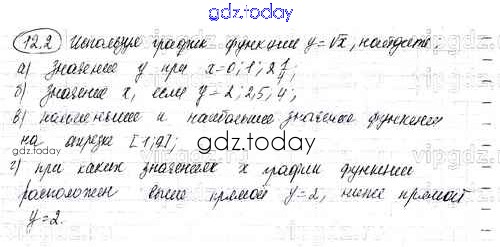 gdz.today
12.2 Используя график функции y=√x, найдите:
а) значение y при x=0; 1; 2 1/4;
б) значение x, если y=2; 2,5; 4;
в) наименьшее и наибольшее значение функции
на отрезке [1;9];
gdz.today
г) при каких значениях x график функции
расположен выше прямой y=2, ниже прямой
y=2.
gdz.today